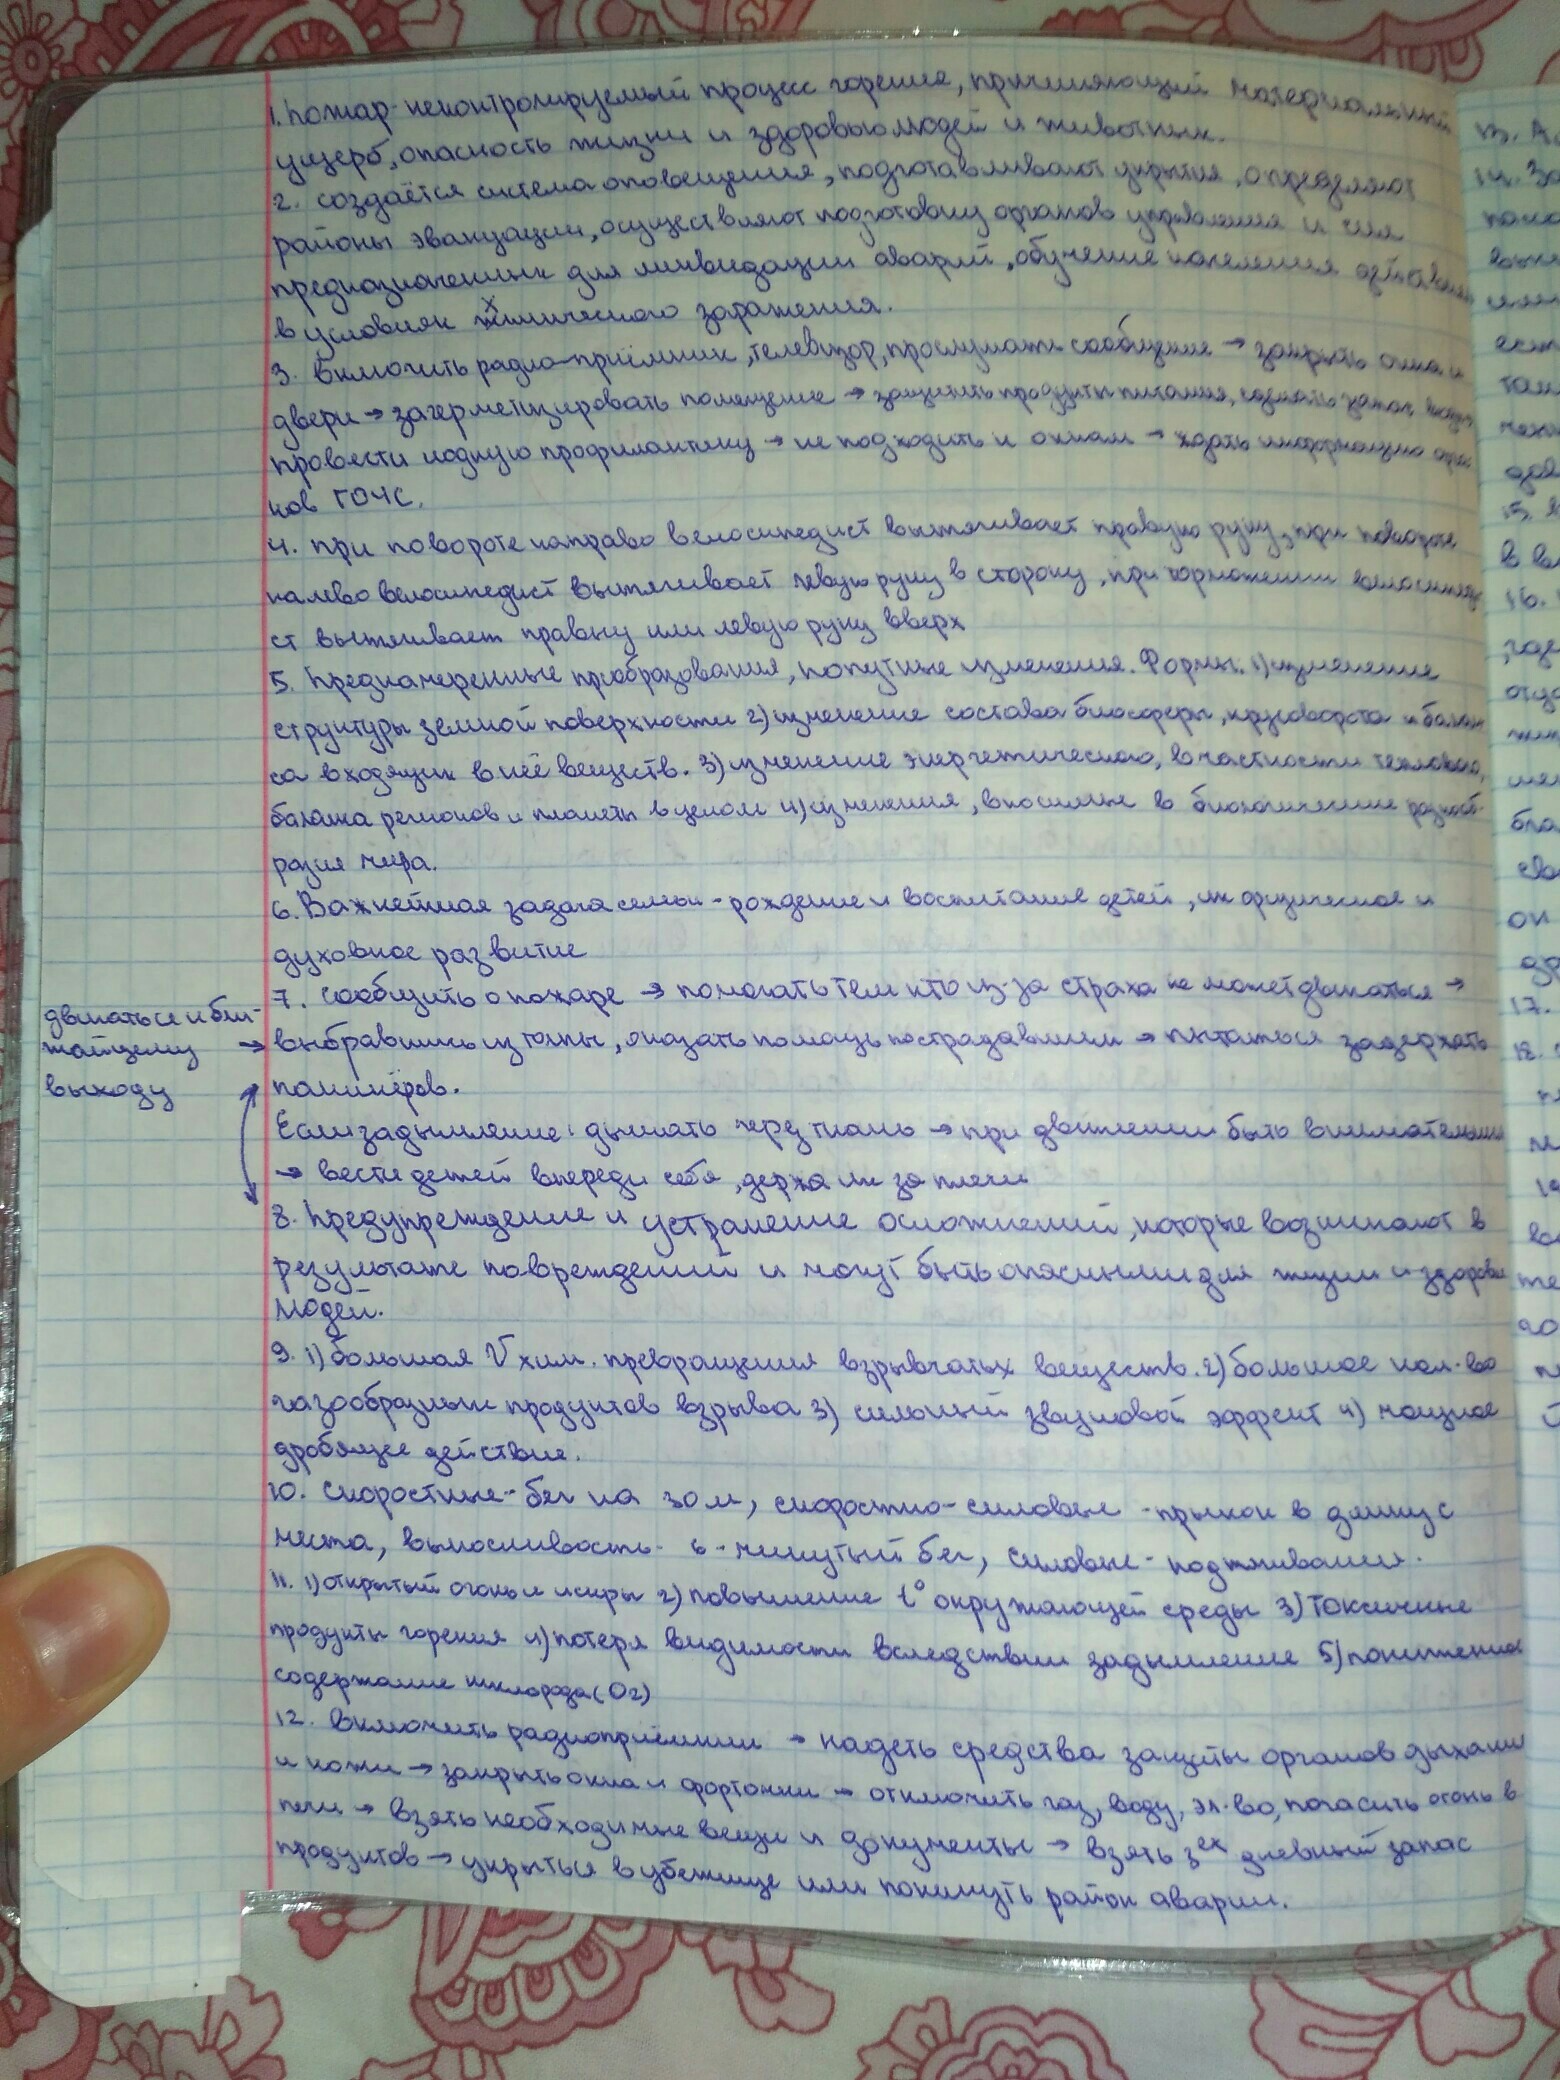 1. Пожар- неконтролируемый процесс горения, причиняющий материальный
ущерб, опасность жизни и здоровью людей и животных.
2. создаётся система оповещения, подготавливают укрытия, определяют
районы эвакуации, осуществляют подготовку органов управления и сил
предназначенных для ликвидации аварий, обучение населения
в условиях химического заражения.
3. Включить радио-приёмник, телевизор, прослушать сообщение → закрыть окна и
двери → загерметизировать помещение → защитить продукты питания, сделать запас воды
провести иодную профилактику → не подходить к окнам → ждать информацию орга
нов ГОЧС.
4. при повороте направо велосипедист вытягивает правую руку, при повороте
налево велосипедист вытягивает левую руку в сторону, при торможении велосипеди
ст вытягивает правую или левую руку вверх
5. Преднамеренные преобразования, попутные изменения. Формы: 1) изменение
структуры земной поверхности 2) изменение состава биосферы, круговорота и балан
са входящих в неё веществ. 3) изменение энергетического, в частности теплового,
баланса регионов и планеты в целом 4) изменения, вносимые в биологические разнооб-
разия мира.
6. Важнейшая задача семьи - рождение и воспитание детей, их физическое и
духовное развитие
7. сообщить о пожаре → помогать тем кто из-за страха не может двигаться →
двигаться к бли-
жайшему →
выходу
выбравшись из толпы, оказать помощь пострадавшим → пытаться задержать
паникёров.
Если задымление: дышать через ткань → при движении быть внимательным
→ вести детей впереди себя, держа их за плечи
8. Предупреждение и устранение осложнений, которые возникают в
результате повреждений и могут быть опасными для жизни и здоровья
людей.
9. 1) большая V хим. превращения взрывчатых веществ. 2) большое кол-во
газообразных продуктов взрыва 3) сильный звуковой эффект 4) мощное
дробящее действие.
10. Скоростные- бег на 30 м, скоростно-силовые - прыжок в длину с
места, выносливость- 6-минутый бег, силовые- подтягивания.
11. 1) открытый огонь и искры 2) повышение t° окружающей среды 3) Токсичные
продукты горения 4) потеря видимости вследствии задымление 5) пониженное
содержание кислорода (O2)
12. Включить радиоприёмник → надеть средства защиты органов дыхания
и кожи → закрыть окна и форточки → отключить газ, воду, эл-во, погасить огонь в
печи → взять необходимые вещи и документы → взять 3ех дневный запас
продуктов → укрыться в убежище или покинуть район аварии.